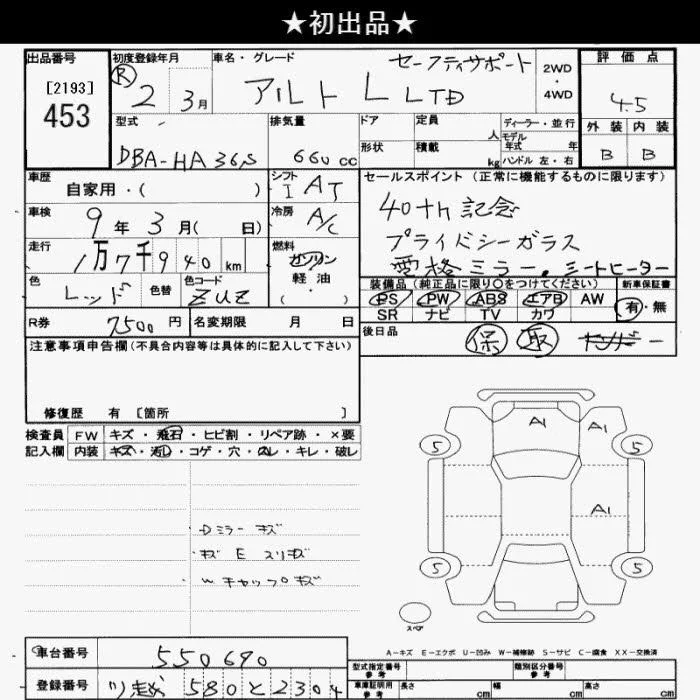 ★初出品★
出品番号 初度登録年月 車名・グレード 評価点
[2193] 453
Ⓡ 2 3月
アルト L LTD セーフティサポート
2WD・4WD
4.5
外装 内装
B B
型式 排気量 ドア 定員 人 ディーラー・並行
モデル年式 年
DBA-HA36S 660cc 形状 積載 kg ハンドル 左・右
車歴 自家用・( )
シフト I AT
セールスポイント(正常に機能するものに限ります)
車検 9年3月( 日)
冷房 A/C
40th記念
走行 1万7千940km
燃料 ガソリン 軽油 ( )
プライバシーガラス
ミラー。シートヒーター
色 レッド 色替 色コード ZUZ
装備品(純正品に限り○をつけてください) 新車保証書
PS PW ABS エアB AW 有・無
SR ナビ TV カワ
R券 7500円 名変期限 月 日
後日品 保 取
注意事項申告欄(不具合内容等は具体的に記入して下さい)
修復歴 有 [箇所 ]
検査員 FW キズ・飛石・ヒビ割・リペア跡・×要
記入欄 内装 キズ・汚レ・コゲ・穴・スレ・キレ・破レ
Dミラーキズ
キズ E スリキズ
Wキャップキズ
A1 A1
5 5
A1
5 5
スペア
A-キズ E-エクボ U-凹み W-補修跡 S-サビ C-腐食 XX-交換済
車台番号 550690
登録番号 580と2304
型式指定番号 参考 類別区分番号 参考
車庫証明用 参考 長さ cm 幅 cm 高さ cm